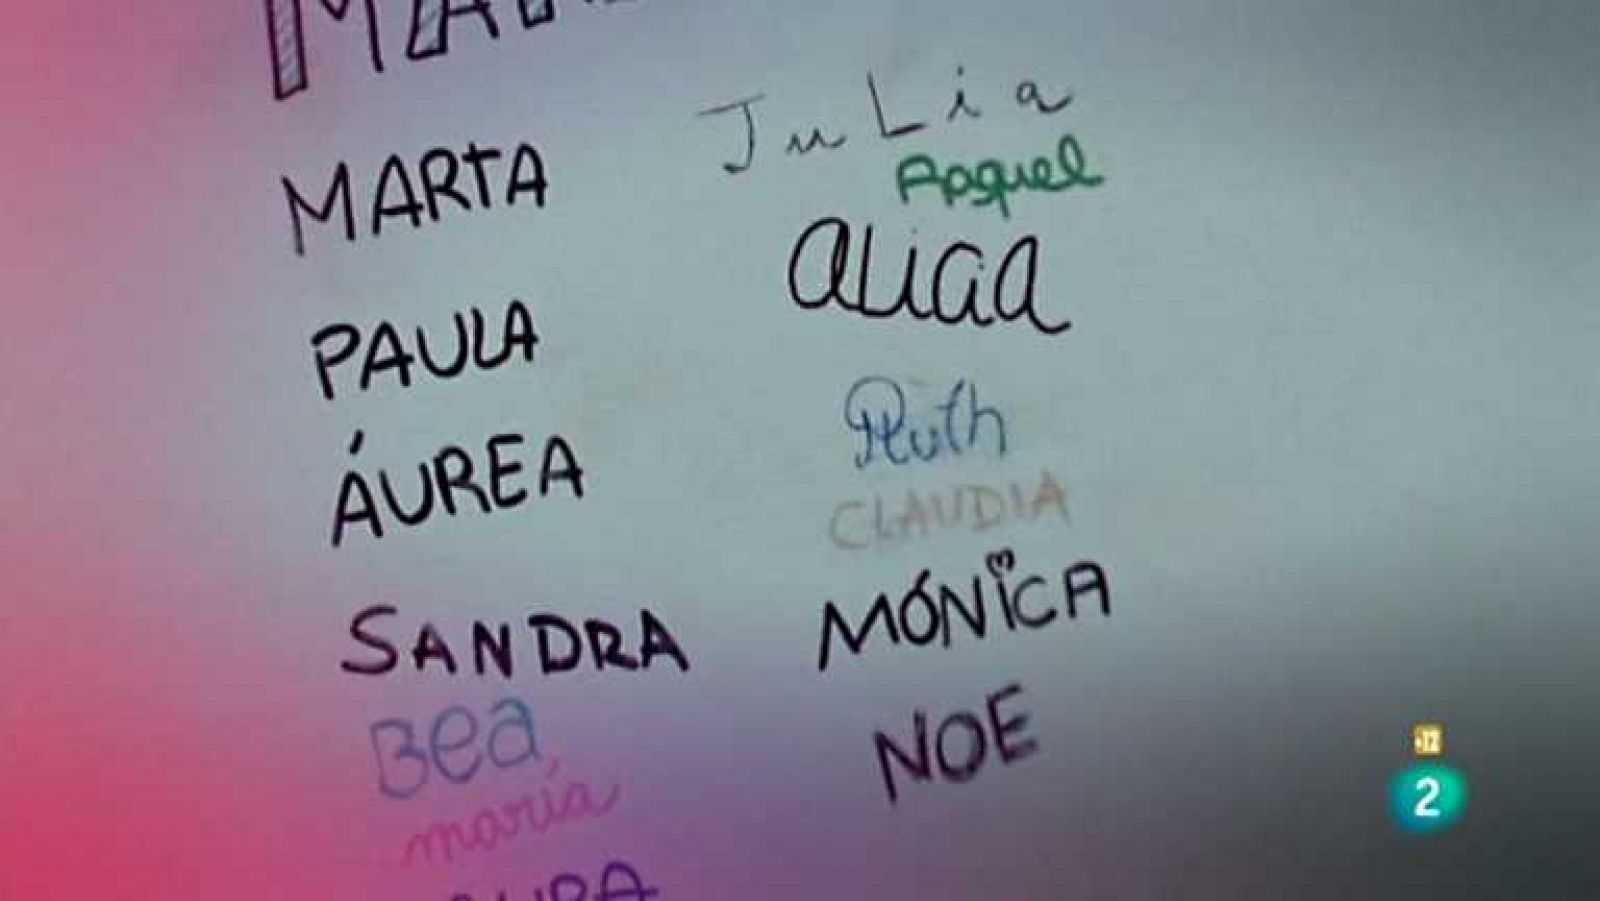 MARTA
PAULA
ÁUREA
SANDRA
Bea
maría
JuLia
Raquel
aLicia
Ruth
CLAUDIA
MÓNiCA
NOE
12
2